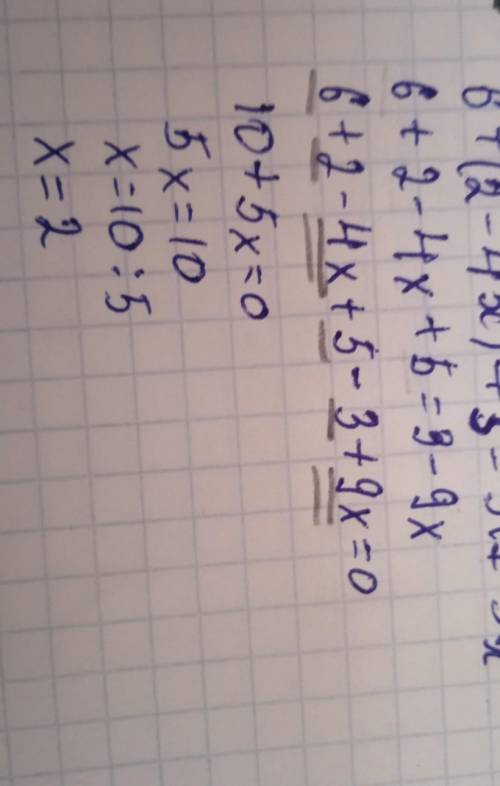 6 + (2 - 4x) + 5 =
6 + 2 - 4x + 5 = 3 - 9x
6 + 2 - 4x + 5 - 3 + 9x = 0
10 + 5x = 0
5x = 10
x = 10 : 5
x = 2